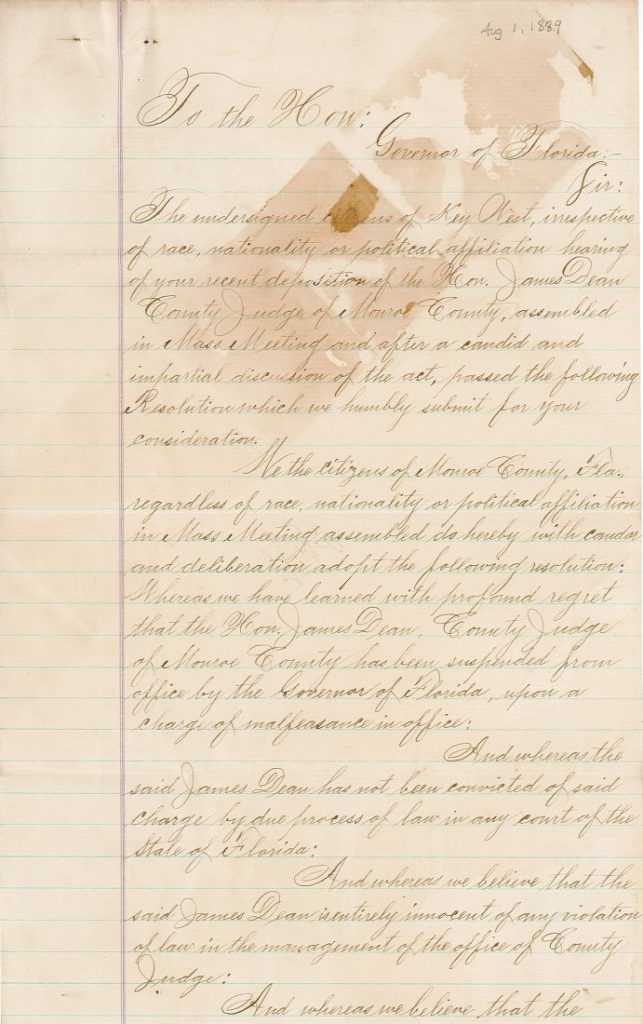 Aug 1, 1889
To the Hon:
Governor of Florida:-
Sir:
The undersigned citizens of Key West, irrespective
of race, nationality or political affiliation hearing
of your recent deposition of the Hon. James Dean
County Judge of Monroe County, assembled
in Mass Meeting and after a candid and
impartial discussion of the act, passed the following
Resolution which we humbly submit for your
consideration.
We the citizens of Monroe County, Fla.,
regardless of race, nationality or political affiliation
in Mass Meeting assembled do hereby with candor
and deliberation adopt the following resolution:
Whereas we have learned with profound regret
that the Hon. James Dean, County Judge
of Monroe County has been suspended from
office by the Governor of Florida, upon a
charge of malfeasance in office:
And whereas the
said James Dean has not been convicted of said
charge by due process of law in any court of the
State of Florida:
And whereas we believe that the
said James Dean is entirely innocent of any violation
of law in the management of the office of County
Judge:
And whereas we believe that the